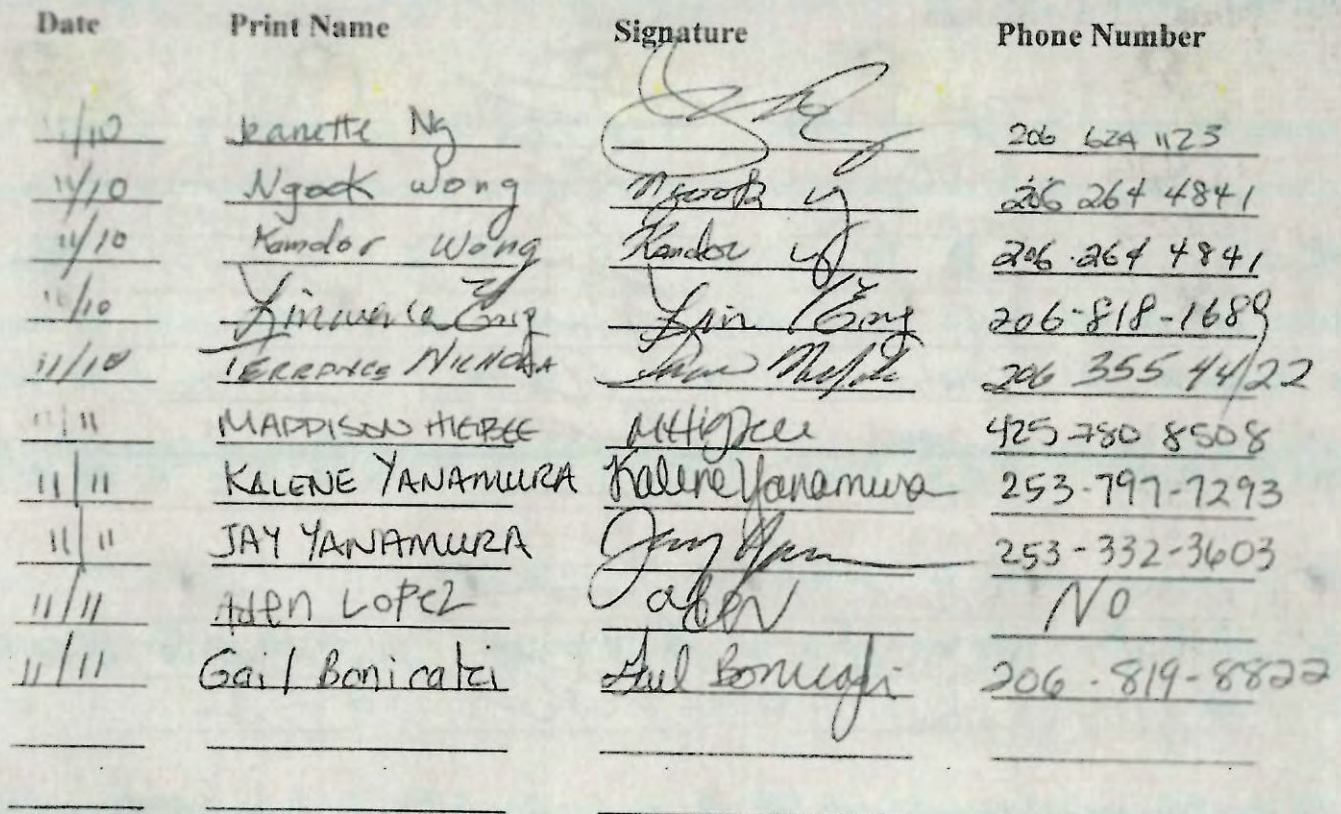 Date Print Name Signature Phone Number
11/10 Jeanette Ng 206 624 1123
11/10 Ngook Wong Ngook 206 264 4841
11/10 Kamdor Wong Kandor 206 264 4841
11/10 Lin 206-818-1689
11/10 TERRANCE 206 355 4422
11/11 MADDISON 425-780 8508
11/11 KALENE YANAMURA Kalene Yanamura 253-797-7293
11/11 JAY YANAMURA Jay 253-332-3603
11/11 Aden LOPEZ aden NO
11/11 Gail Bonicalzi Gail Bonicalzi 206-819-8822